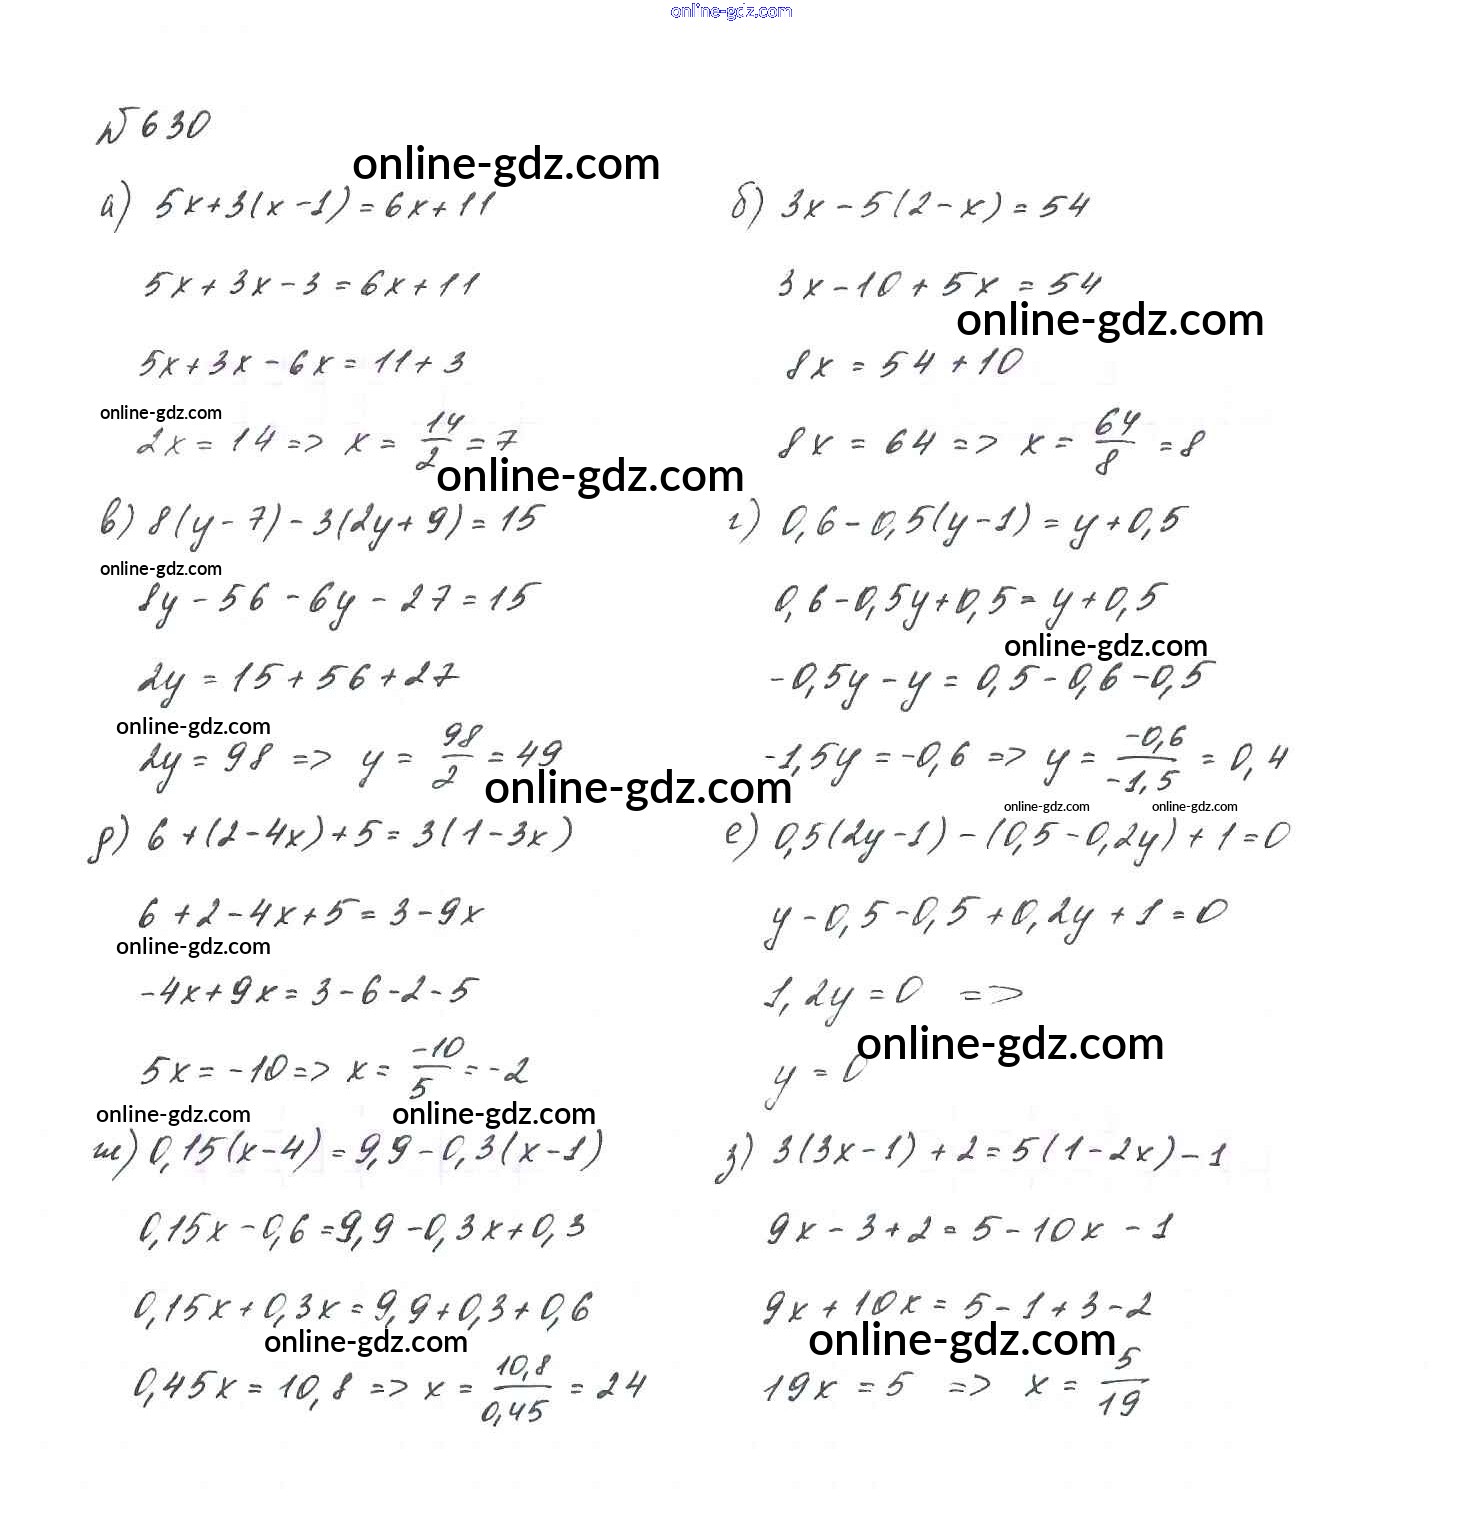 online-gdz.com
№ 630
online-gdz.com
а) 5x+3(x-1)=6x+11
б) 3x-5(2-x)=54
5x+3x-3=6x+11
3x-10+5x=54
online-gdz.com
5x+3x-6x=11+3
8x=54+10
online-gdz.com
2x=14=>x=14/2=7
8x=64=>x=64/8=8
online-gdz.com
в) 8(y-7)-3(2y+9)=15
г) 0,6-0,5(y-1)=y+0,5
online-gdz.com
8y-56-6y-27=15
0,6-0,5y+0,5=y+0,5
online-gdz.com
2y=15+56+27
-0,5y-y=0,5-0,6-0,5
online-gdz.com
2y=98=>y=98/2=49
-1,5y=-0,6=>y=-0,6/-1,5=0,4
online-gdz.com
online-gdz.com
online-gdz.com
д) 6+(2-4x)+5=3(1-3x)
е) 0,5(2y-1)-(0,5-0,2y)+1=0
6+2-4x+5=3-9x
y-0,5-0,5+0,2y+1=0
online-gdz.com
-4x+9x=3-6-2-5
1,2y=0=>
online-gdz.com
5x=-10=>x=-10/5=-2
y=0
online-gdz.com
online-gdz.com
ж) 0,15(x-4)=9,9-0,3(x-1)
з) 3(3x-1)+2=5(1-2x)-1
0,15x-0,6=9,9-0,3x+0,3
9x-3+2=5-10x-1
0,15x+0,3x=9,9+0,3+0,6
9x+10x=5-1+3-2
online-gdz.com
online-gdz.com
0,45x=10,8=>x=10,8/0,45=24
19x=5=>x=5/19